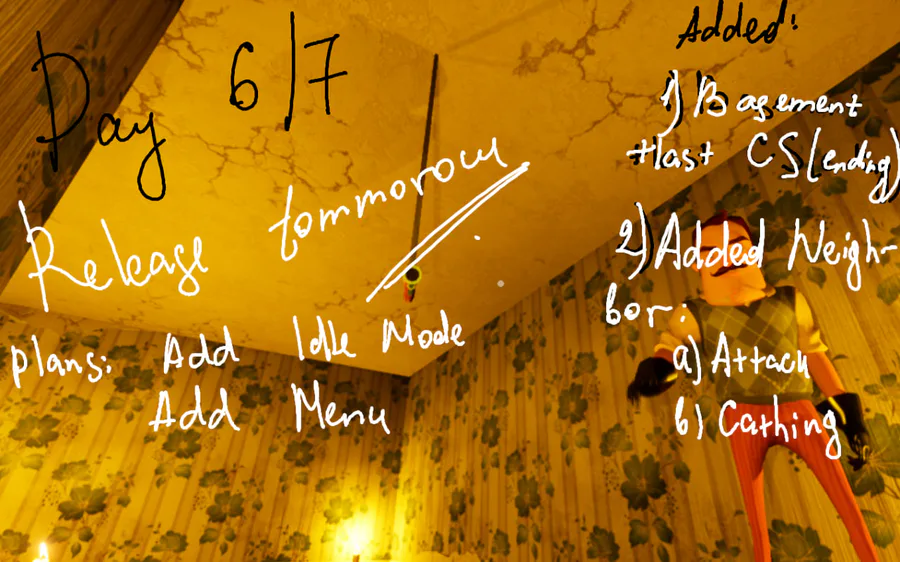 Day 6/7
Release tommorow
plans: Add Idle Mode
Add Menu
Added:
1) Basement
+last CS(ending)
2) Added Neigh-
bor:
a) Attack
b) Cathing